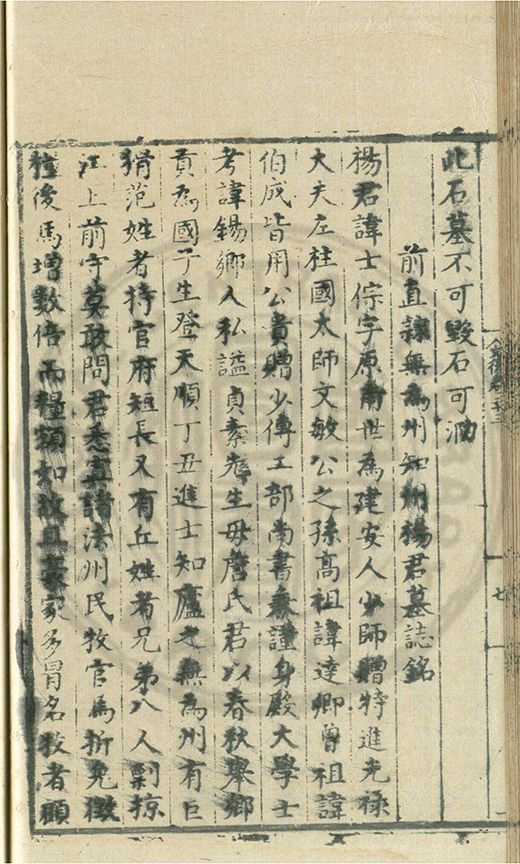 此石墓不可毀石可泐
前直隷無為州知州楊君墓誌銘
楊君諱士倧字原南世為建安人少師贈特進光祿
大夫左柱國太師文敏公之孫高祖諱達卿曾祖諱
伯成皆用公貴贈少傅工部尚書兼謹身殿大學士
考諱錫鄉人私謚貞素先生母詹氏君以春秋舉鄉
貢為國子生登天順丁丑進士知廬之無為州有巨
猾范姓者持官府短長又有丘姓者兄弟八人剽掠
江上前守莫敢問君悉寘諸法州民牧官馬折免徵
種後馬增數倍而糧額如故且豪家多冒名牧者顧
七